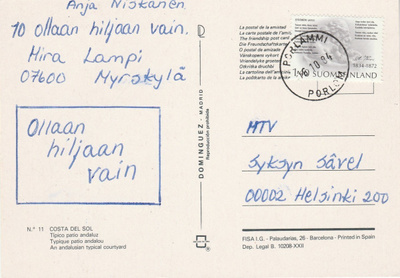 Anja Niskanen
10 ollaan hiljaan vain.
Mira Lampi
07600 Myrskylä
Ollaan
hiljaan
vain
N.º 11 COSTA DEL SOL
Típico patio andaluz
Typique patio andalou
An andalusian typical courtyard
DOMINGUEZ - MADRID
Reproducción prohibida
La postal de la amistad
La carte postale de l'amitié
The friendship post card
Die Freundschaftskarte
O postal da amizade
Vänskapens vykort
Vriendelijke groeten
La cartolina dell'amicizia
SUOMI FINLAND
PORLAMMI
10.94
PORLOM
MTV
Syksyn Sävel
00002 Helsinki 200
FISA I.G. - Palaudarias, 26 - Barcelona - Printed in Spain
Dep. Legal B. 10208-XXII